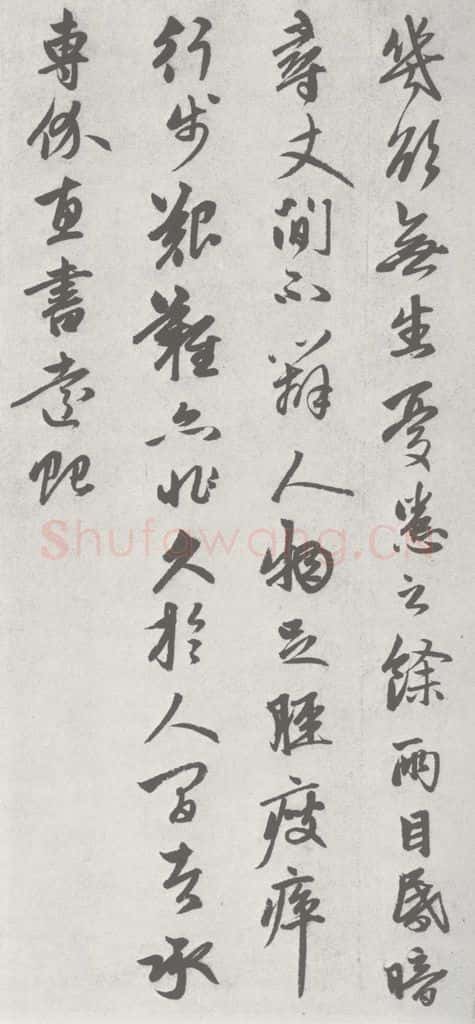 幾欲無生憂之餘兩目昏暗
尋丈間不辨人物足脛瘦瘁
行步艱難亦非久於人間者承
專价惠書遠貺
Shufawang.CN